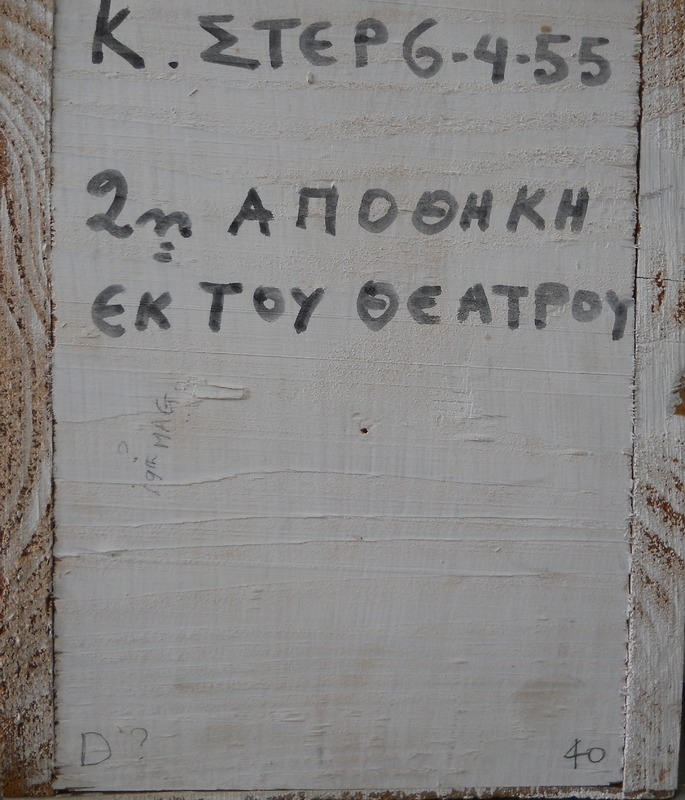 Κ. ΣΤΕΡ 6-4-55
2η ΑΠΟΘΗΚΗ
ΕΚ ΤΟΥ ΘΕΑΤΡΟΥ
MAG
D ?
40